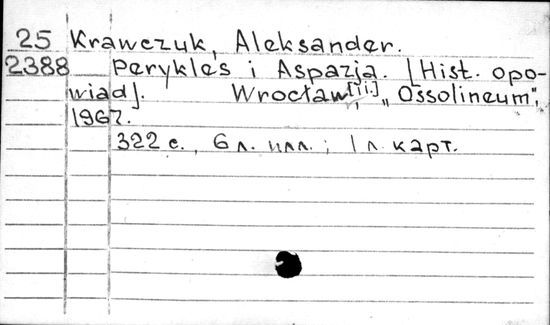 25 Krawczuk, Aleksander.
2388 Perykles i Aspazja. [Hist. opo-
wiad]. Wrocław [ii.] „Ossolineum",
1967.
322 с., 6 л. илл.; 1 л. карт.